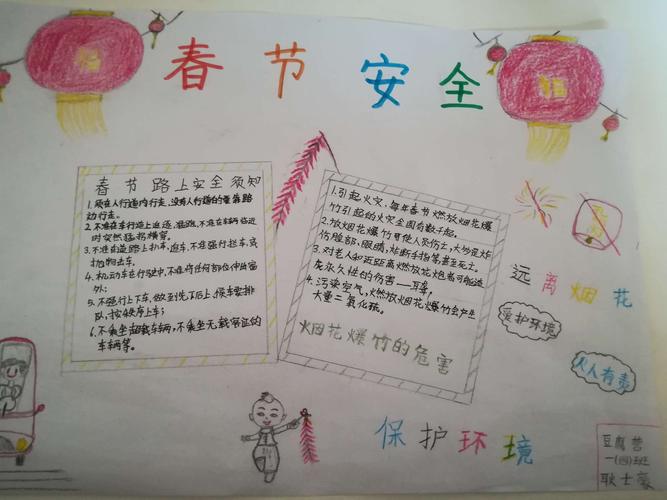 春节安全
福
福
春节路上安全须知
1.须在人行道内行走,没有人行道的靠路
边行走。
2.不准在车行道上追逐,猛跑,不准在车辆临近
时突然猛拐横穿。
3.不准在道路上扒车,追车,不准强行拦车,或
抛物击车。
4.机动车在行驶中,不准将任何部位伸出窗
外;
5.不强行上下车,做到先下后上,候车要排
队,按秩序上车;
6.不乘坐超载车辆,不乘坐无载客证的
车辆等。
1.引起火灾,每年春节燃放烟花爆
竹引起的火灾全国有数千起。
2.放烟花爆竹可使人受伤
伤脸部,眼睛,炸断手指等,甚至死亡。
3.对老人和近距离燃放花炮者可能造
成永久性的伤害——耳聋。
4.污染空气,燃放烟花爆竹会产生
大量二氧化硫。
烟花爆竹的危害
远离烟花
爱护环境
人人有责
保护环境
豆腐营
一(四)班
耿士豪